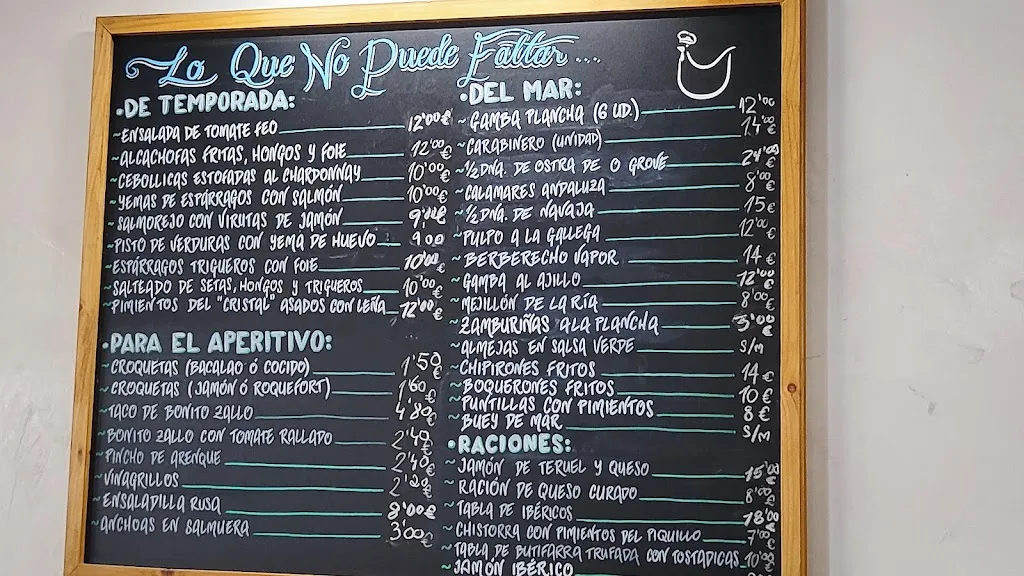 Lo Que No Puede Faltar....
•DE TEMPORADA:
~ENSALADA DE TOMATE FEO 12'00€
~ALCACHOFAS FRITAS, HONGOS Y FOIE 12'00€
~CEBOLLICAS ESTOFADAS AL CHARDONNAY 10'00€
~YEMAS DE ESPÁRRAGOS CON SALMÓN 10'00€
~SALMOREJO CON VIRUTAS DE JAMÓN 9'00€
~PISTO DE VERDURAS CON YEMA DE HUEVO 9'00
~ESPÁRRAGOS TRIGUEROS CON FOIE 10'00€
~SALTEADO DE SETAS, HONGOS Y TRIGUEROS 10'00€
~PIMIENTOS DEL "CRISTAL" ASADOS CON LEÑA 12'00€
•PARA EL APERITIVO:
~CROQUETAS (BACALAO Ó COCIDO) 1'50€
~CROQUETAS (JAMÓN Ó ROQUEFORT) 1'60€
~TACO DE BONITO ZALLO 4'80€
~BONITO ZALLO CON TOMATE RALLADO 2'40€
~PINCHO DE ARENQUE 2'40€
~VINAGRILLOS 2'20€
~ENSALADILLA RUSA 8'00€
~ANCHOAS EN SALMUERA 3'00€
•DEL MAR:
~GAMBA PLANCHA (6 UD.) 12'00
~CARABINERO (UNIDAD) 14'€
~½ DNA. DE OSTRA DE O GROVE 24'00€
~CALAMARES ANDALUZA 8'00€
~½ DNA. DE NAVAJA 15€
~PULPO A LA GALLEGA 12'00€
~BERBERECHO VAPOR 14€
~GAMBA AL AJILLO 12'00€
~MEJILLÓN DE LA RÍA 8'00€
~ZAMBURIÑAS A LA PLANCHA 3'00€
~ALMEJAS EN SALSA VERDE S/M
~CHIPIRONES FRITOS 14€
~BOQUERONES FRITOS 10€
~PUNTILLAS CON PIMIENTOS 8€
~BUEY DE MAR S/M
•RACIONES:
~JAMÓN DE TERUEL Y QUESO 15'00€
~RACIÓN DE QUESO CURADO 8'00€
~TABLA DE IBÉRICOS 18'00
~CHISTORRA CON PIMIENTOS DEL PIQUILLO 7'00€
~TABLA DE BUTIFARRA TRUFADA CON TOSTADICAS 10'00€
~JAMÓN IBÉRICO